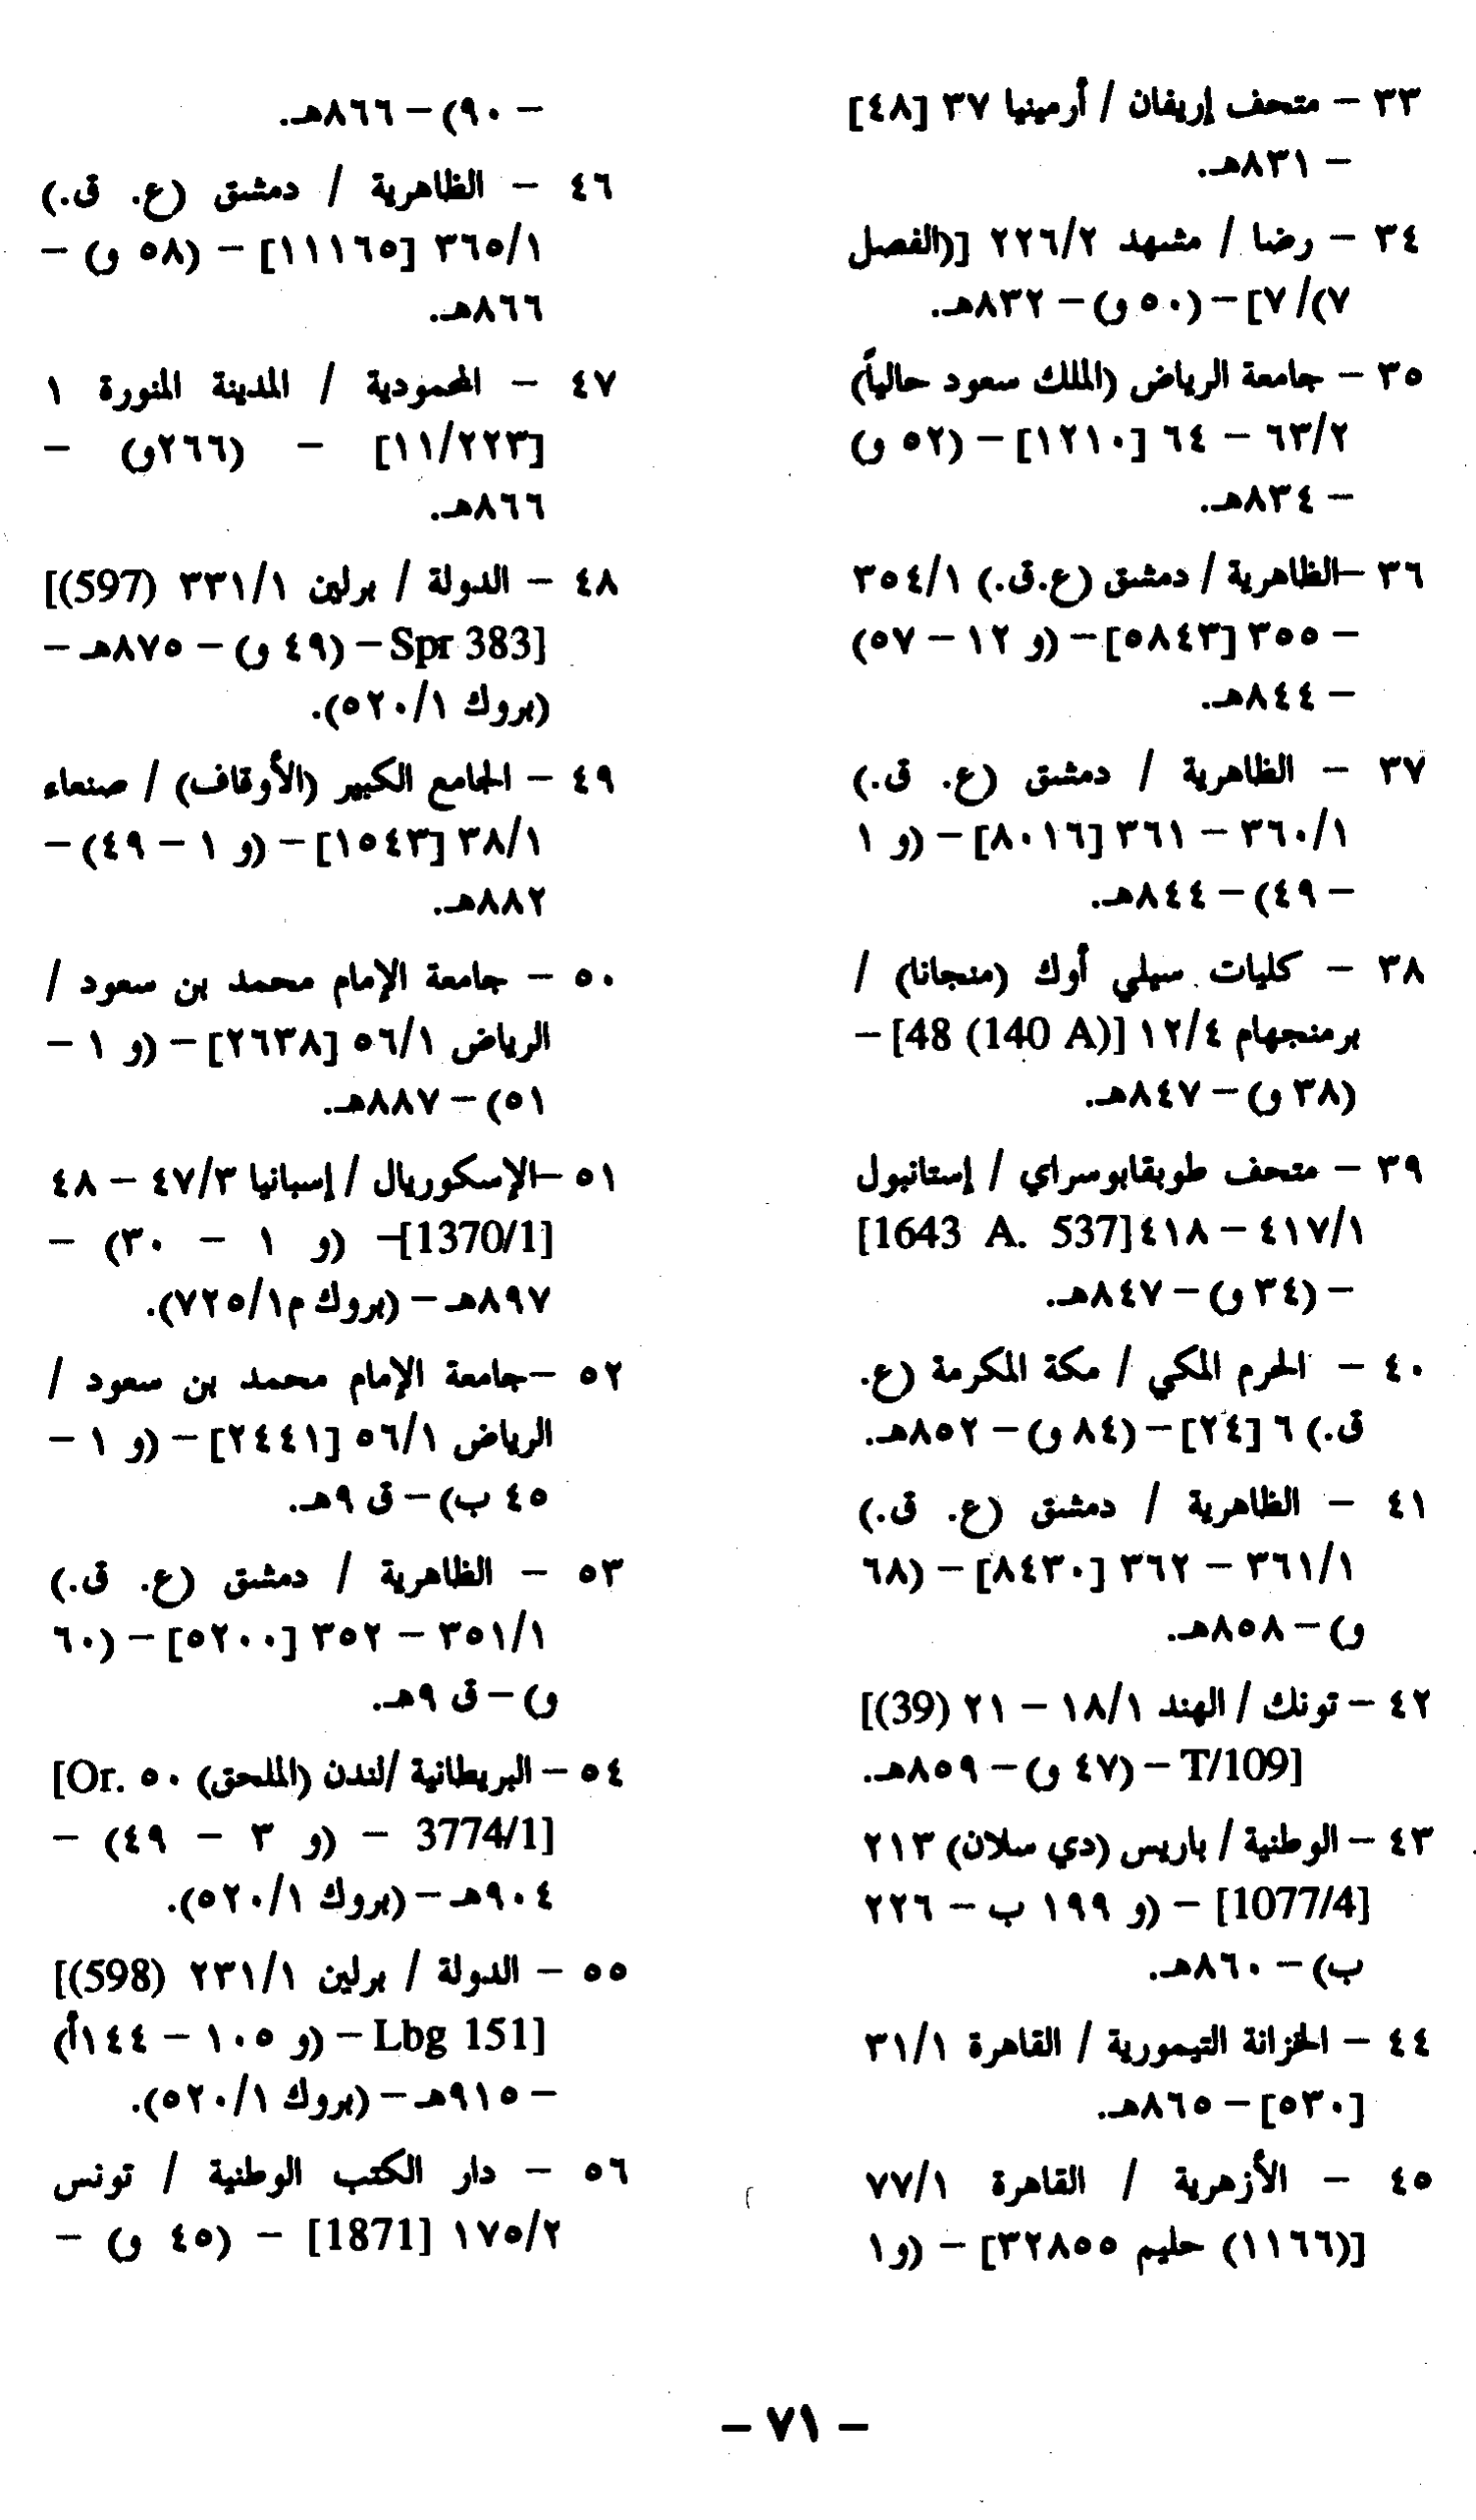 ٣٣ – متحف إريفان / أرمينيا ٣٧ [٤٨]
– ٨٣١هـ.
٣٤ – رضا / مشهد ٢٢٦/٢ [(الفصل
٧)/ ٧] – (٥٠ و) – ٨٣٢هـ.
٣٥ – جامعة الرياض (الملك سعود حالياً)
٦٣/٢ – ٦٤ [١٢١٠] – (٥٢ و)
– ٨٣٤هـ.
٣٦ –الظاهرية / دمشق (ع.ق.) ٣٥٤/١
– ٣٥٥ [٥٨٤٣] – (و ١٢ – ٥٧)
– ٨٤٤هـ.
٣٧ – الظاهرية / دمشق (ع. ق.)
٣٦٠/١ – ٣٦١ [٨٠١٦] – (و ١
– ٤٩) – ٨٤٤هـ.
٣٨ – كليات سيلي أوك (منجانا) /
برمنجهام ١٢/٤ [48 (140 A)] –
(٣٨ و) – ٨٤٧هـ.
٣٩ – متحف طوبقابوسراي / إستانبول
٤١٧/١ – ٤١٨ [1643 A. 537]
– (٣٤ و) – ٨٤٧هـ.
٤٠ – الحرم المكي / مكة المكرمة (ع.
ق.) ٦ [٢٤] – (٨٤ و) – ٨٥٢هـ.
٤١ – الظاهرية / دمشق (ع. ق.)
٣٦١/١ – ٣٦٢ [٨٤٣٠] – (٦٨
و) – ٨٥٨هـ.
٤٢ – تونك / الهند ١٨/١ – ٢١ [(39)
T/109] – (٤٧ و) – ٨٥٩هـ.
٤٣ – الوطنية / باريس (دي سلان) ٢١٣
[1077/4] – (و ١٩٩ ب – ٢٢٦
ب) – ٨٦٠هـ.
٤٤ – الخزانة التيمورية / القاهرة ٣١/١
[٥٣٠] – ٨٦٥هـ.
٤٥ – الأزهرية / القاهرة ٧٧/١
[(١١٦٦) حليم ٣٢٨٥٥] – (و١
– ٩٠) – ٨٦٦هـ.
٤٦ – الظاهرية / دمشق (ع. ق.)
٣٦٥/١ [١١١٦٥] – (٥٨ و) –
٨٦٦هـ.
٤٧ – المحمودية / المدينة المنورة ١
[١١/٢٢٣] – (٢٦٦و) –
٨٦٦هـ.
٤٨ – الدولة / برلين ٣٣١/١ [(597)
Spr 383] – (٤٩ و) – ٨٧٥هـ –
(بروك ٥٢٠/١).
٤٩ – الجامع الكبير (الأوقاف) / صنعاء
٣٨/١ [١٥٤٣] – (و ١ – ٤٩) –
٨٨٢هـ.
٥٠ – جامعة الإمام محمد بن سعود /
الرياض ٥٦/١ [٢٦٣٨] – (و ١ –
٥١) – ٨٨٧هـ.
٥١ –الإسكوريال / إسبانيا ٤٧/٣ – ٤٨
[1370/1]– (و ١ – ٣٠) –
٨٩٧هـ – (بروك م٧٢٥/١).
٥٢ –جامعة الإمام محمد بن سعود /
الرياض ٥٦/١ [٢٤٤١] – (و ١ –
٤٥ ب) – ق ٩هـ.
٥٣ – الظاهرية / دمشق (ع. ق.)
٣٥١/١ – ٣٥٢ [٥٢٠٠] – (٦٠
و) – ق ٩هـ.
٥٤ – البريطانية /لندن (الملحق) ٥٠ [Or.
3774/1] – (و ٣ – ٤٩) –
٩٠٤هـ – (بروك ٥٢٠/١).
٥٥ – الدولة / برلين ٢٣١/١ [(598)
Lbg 151] – (و ١٠٥ – ١٤٤أ)
– ٩١٥هـ – (بروك ٥٢٠/١).
٥٦ – دار الكتب الوطنية / تونس
١٧٥/٢ [1871] – (٤٥ و) –
– ٧١ –